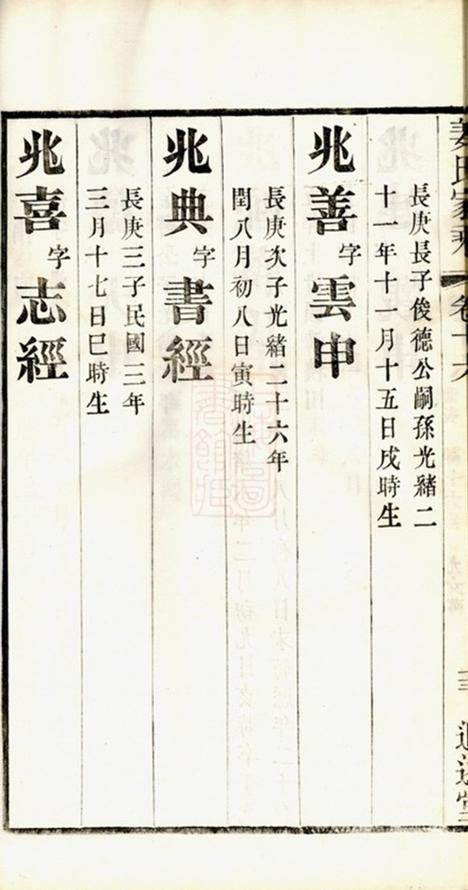 兆善字雲申
長庚長子俊德公嗣孫光緒二
十一年十一月十五日戌時生
兆典字書經
長庚次子光緒二十六年
閏八月初八日寅時生
兆喜字志經
長庚三子民國三年
三月十七日巳時生